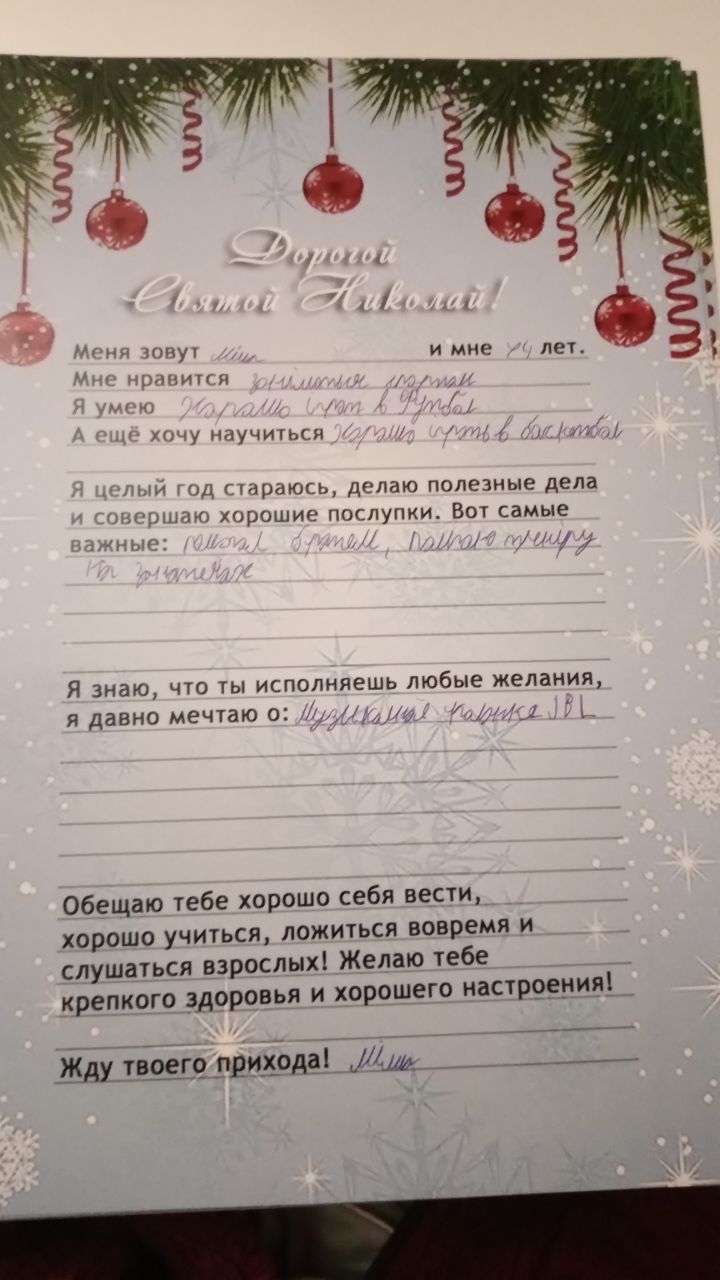 Дорогой
Святой Николай!
Меня зовут и мне 14 лет.
Мне нравится
Я умею Харашо в Футбол
А ещё хочу научиться Харашо играть в баскетбол
Я целый год стараюсь, делаю полезные дела
и совершаю хорошие послупки. Вот самые
важные: братом,
На
Я знаю, что ты исполняешь любые желания,
я давно мечтаю о: JBL
Обещаю тебе хорошо себя вести,
хорошо учиться, ложиться вовремя и
слушаться взрослых! Желаю тебе
крепкого здоровья и хорошего настроения!
Жду твоего прихода!